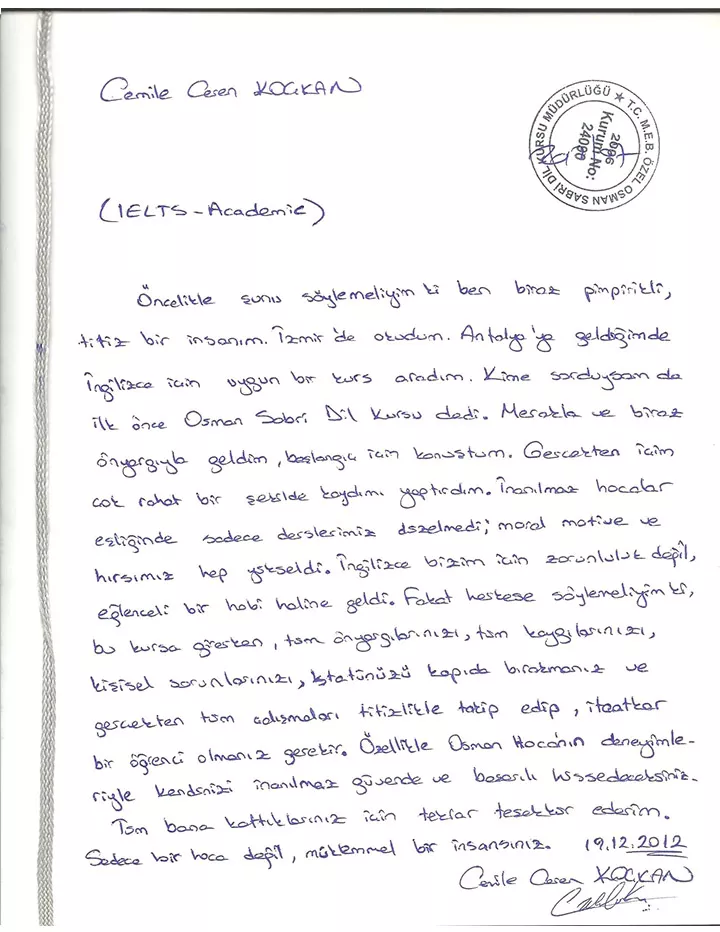 Cemile Ceren KOÇKAN
T.C. M.E.B. ÖZEL OSMAN SABRİ DİL KURSU MÜDÜRLÜĞÜ
2006
Kurum No:
(IELTS - Academic)
Öncelikle şunu söylemeliyim ki ben biraz pimpirikli,
titiz bir insanım. İzmir'de okudum. Antalya'ya geldiğimde
İngilizce için uygun bir kurs aradım. Kime sorduysam da
ilk önce Osman Sabri Dil Kursu dedi. Merakla ve biraz
önyargıyla geldim, başlangıç için konuştum. Gerçekten içim
çok rahat bir şekilde kaydımı yaptırdım. İnanılmaz hocalar
eşliğinde sadece derslerimiz düzelmedi; moral motive ve
hırsımız hep yükseldi. İngilizce bizim için zorunluluk değil,
eğlenceli bir hobi haline geldi. Fakat herkese söylemeliyim ki,
bu kursa girerken, tüm önyargılarınızı, tüm kaygılarınızı,
kişisel sorunlarınızı, ıstatünüzü kapıda bırakmanız ve
gerçekten tüm çalışmaları titizlikle takip edip, itaatkar
bir öğrenci olmanız gerekir. Özellikle Osman Hoca'nın deneyimle-
riyle kendinizi inanılmaz güvende ve başarılı hissedeceksiniz.
Tüm bana kattıklarınız için tekrar teşekkür ederim.
Sadece bir hoca değil, mükemmel bir insansınız. 19.12.2012
Cemile Ceren KOÇKAN